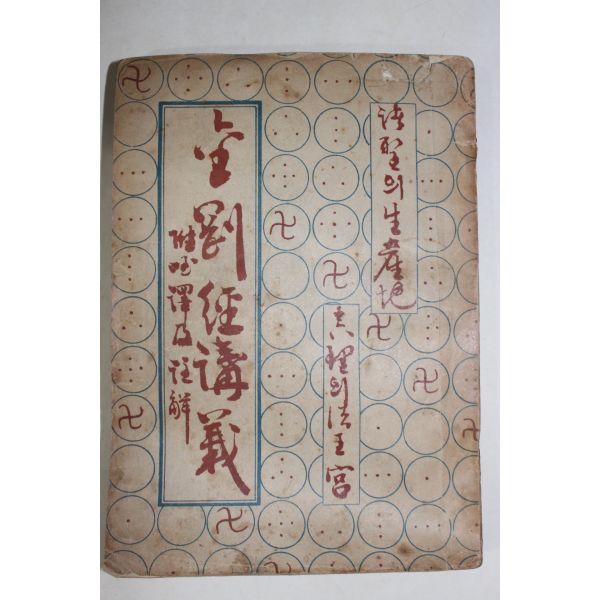 諸聖의生産地
眞理의法王宮
金剛經講義
譯及註解